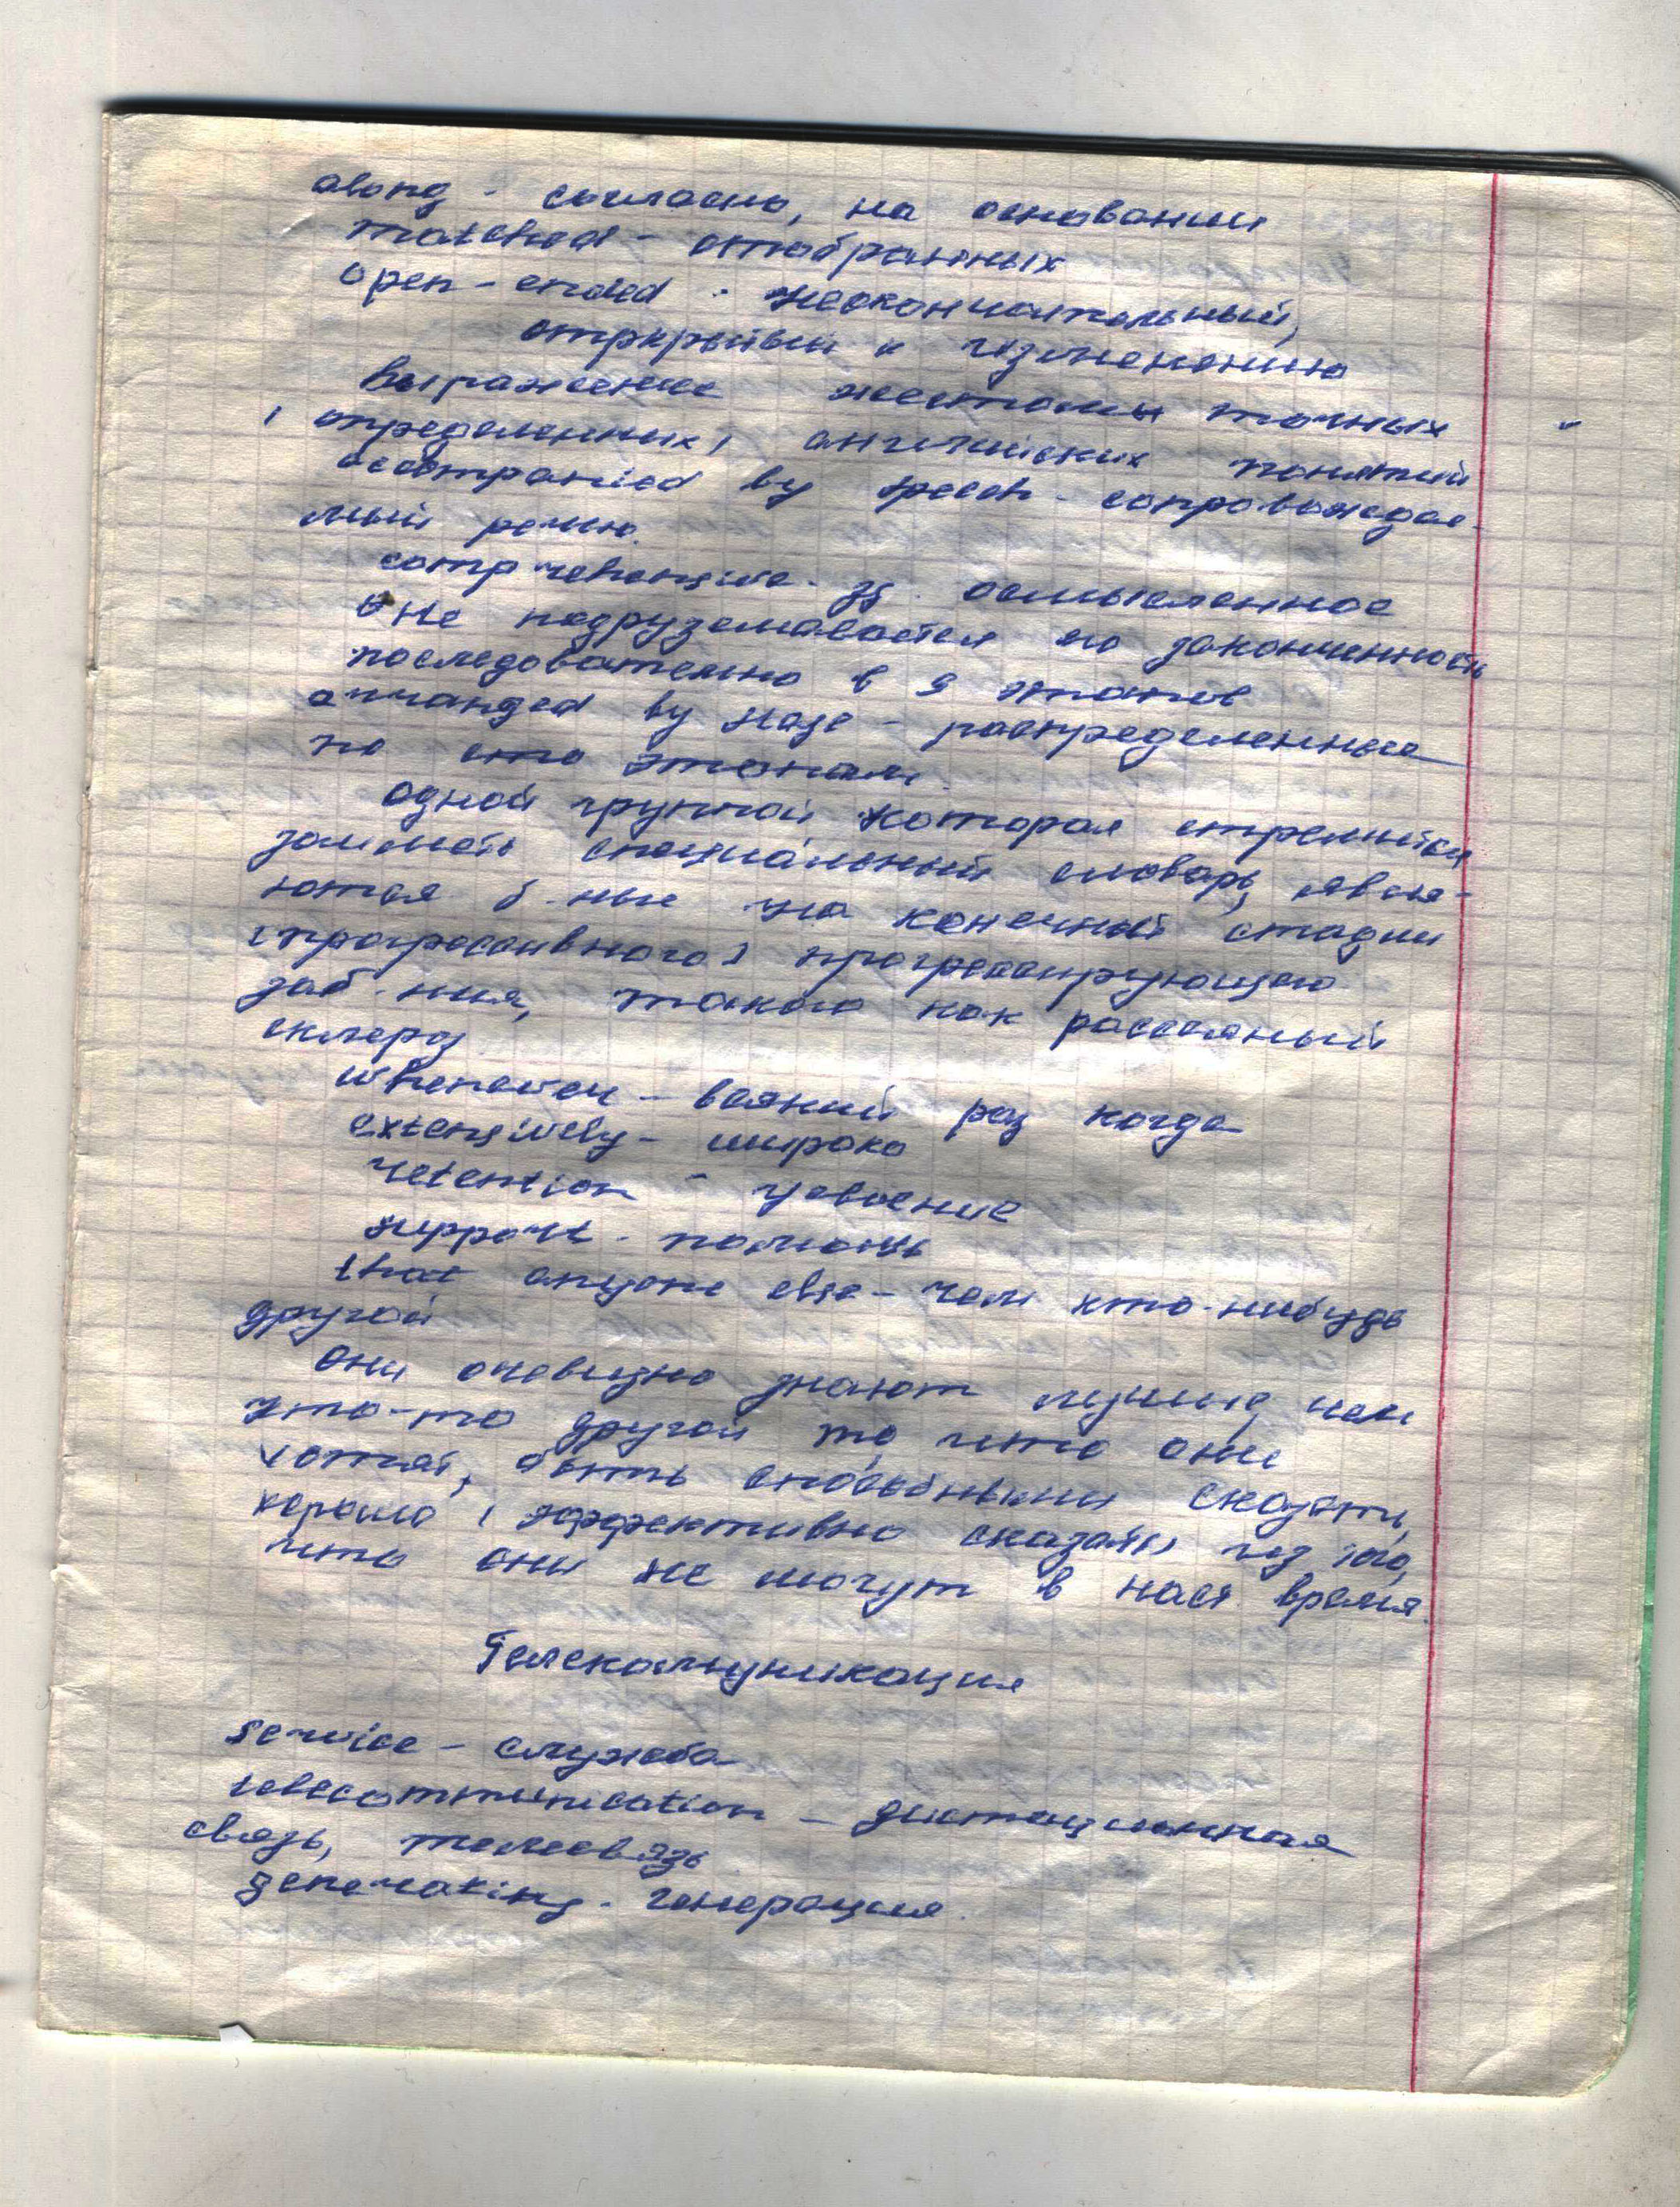 along - согласно, на основании
matched - отобранных
open-ended - неокончательный,
открытый к изменению
выражение жестами точных
(определенных) английских понятий
accompanied by speech - сопровождае-
мый речью.
comprehensive - зд. осмысленное
Не подразумевается его законченность
последовательно в 9 этапов
arranged by stage - распределенные
по этапам.
Одной группой, которая стремится
заиметь специальный словарь, явля-
ются б-ные на конечной стадии
(прогрессивного) прогрессирующего
заб-ния, такого как рассеяный
склероз
whenever - всякий раз когда
extensively - широко
retention - усвоение
support - помощь
that anyone else - чем кто-нибудь
другой
Они очевидно знают лучше, чем
кто-то другой то, что они
хотят, быть способными сказать,
хорошо (эффективно сказать) из того,
что они не могут в наст время.
Телекоммуникация
service - служба
telecommunication - дистанционная
связь, телесвязь
generating - генерация.